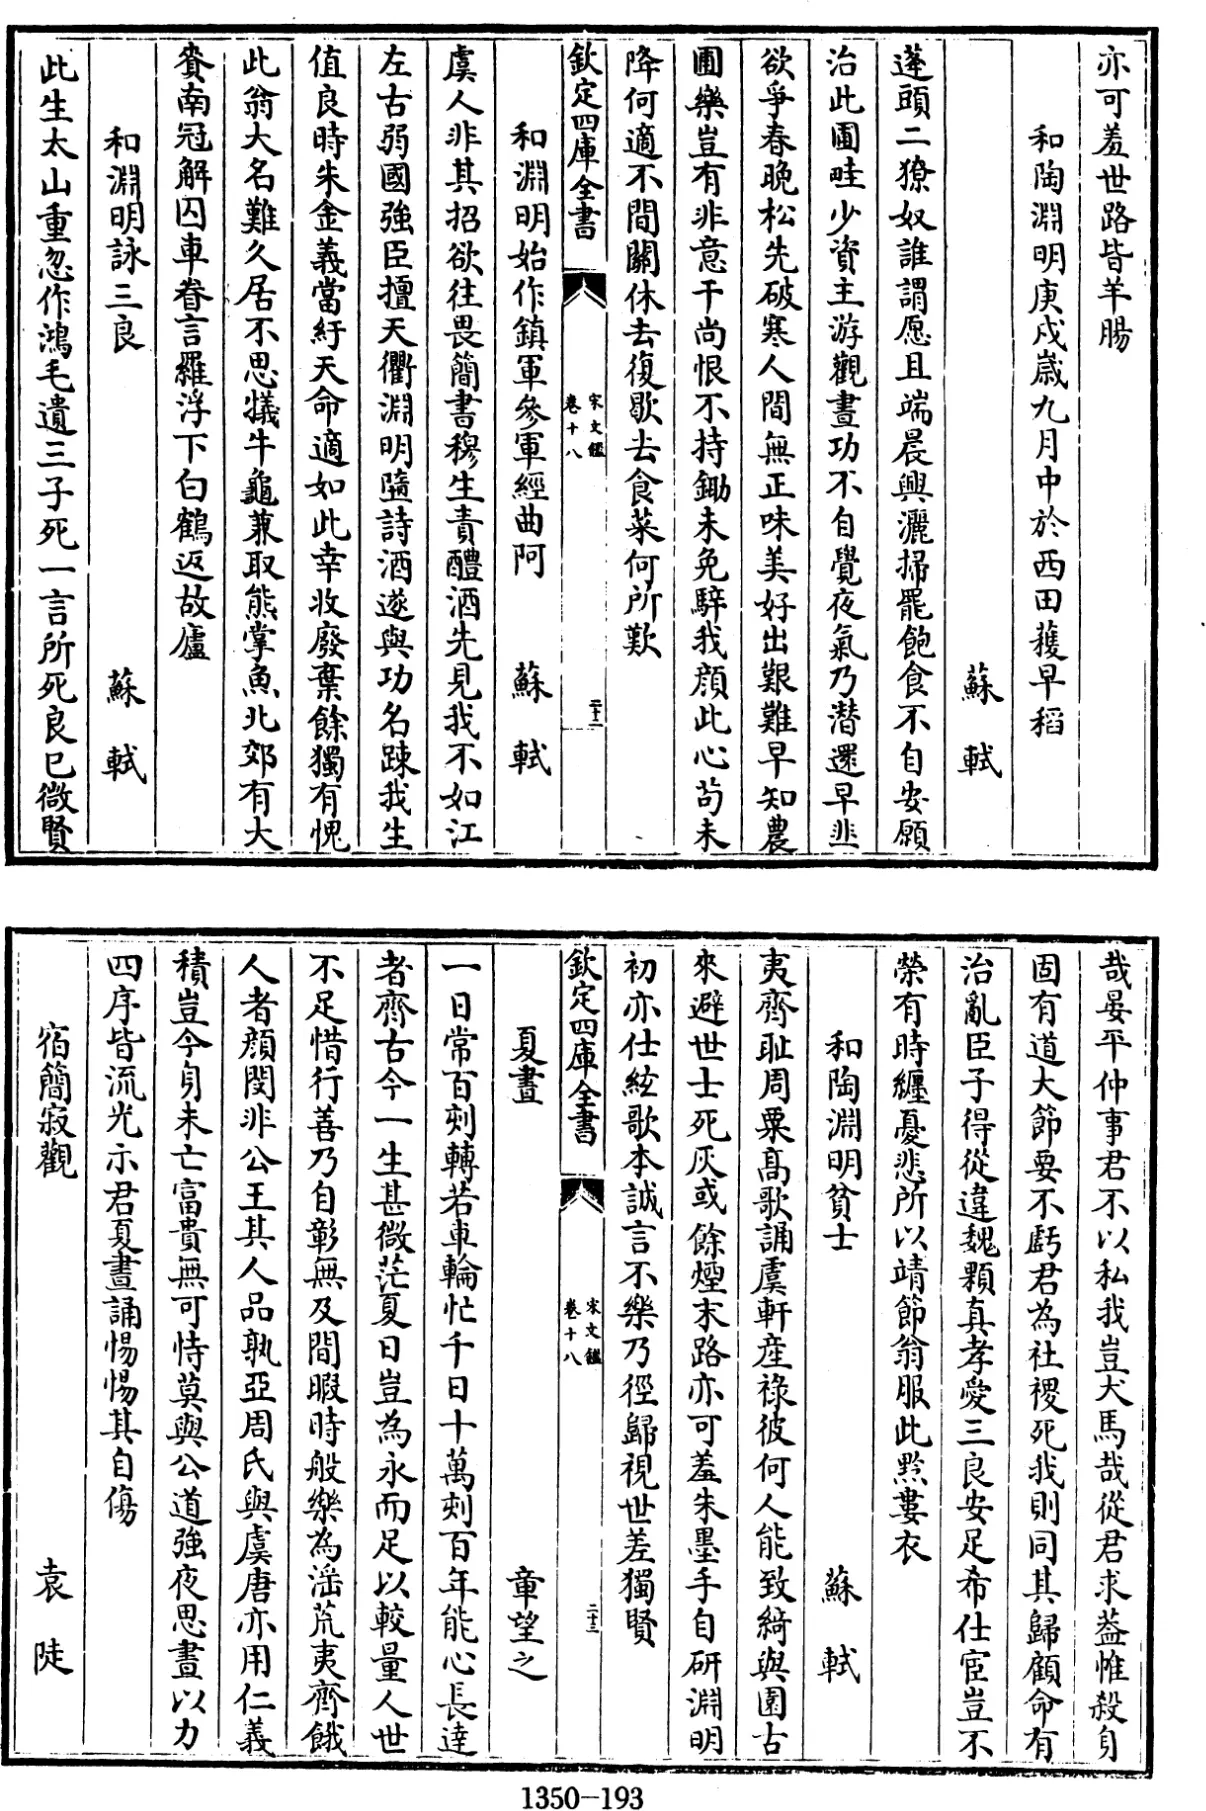 亦可羞世路皆羊腸
和陶淵明庚戌歲九月中於西田獲早稻
蘇軾
蓬頭二獠奴誰謂愿且端晨興灑掃罷飽食不自安願
治此圃畦少資主游觀晝功不自覺夜氣乃潛還早韭
欲爭春晚松先破寒人間無正味美好出艱難早知農
圃樂豈有非意干尚恨不持鋤未免騂我顔此心苟未
降何適不間關休去復歇去食菜何所歎
欽定四庫全書
宋文鑑
卷十八
二十二
和淵明始作鎮軍參軍經曲阿 蘇軾
虞人非其招欲往畏簡書穆生責醴酒先見我不如江
左古弱國強臣擅天衢淵明墮詩酒遂與功名踈我生
值良時朱金義當紆天命適如此幸收廢棄餘獨有愧
此翁大名難久居不思犧牛龜兼取熊掌魚北郊有大
賚南冠解囚車眷言羅浮下白鶴返故廬
和淵明詠三良 蘇軾
此生太山重忽作鴻毛遺三子死一言所死良已微賢
哉晏平仲事君不以私我豈犬馬哉從君求葢惟殺身
固有道大節要不虧君為社稷死我則同其歸顧命有
治亂臣子得從違魏顆真孝愛三良安足希仕宦豈不
榮有時纏憂悲所以靖節翁服此黔婁衣
和陶淵明貧士 蘇軾
夷齊耻周粟髙歌誦虞軒産祿彼何人能致綺與園古
來避世士死灰或餘煙末路亦可羞朱墨手自研淵明
初亦仕絃歌本誠言不樂乃徑歸視世差獨賢
欽定四庫全書
宋文鑑
卷十八
二十三
夏晝 章望之
一日常百刻轉若車輪忙千日十萬刻百年能心長達
者齊古今一生甚微茫夏日豈為永而足以較量人世
不足惜行善乃自彰無及間暇時般樂為滛荒夷齊餓
人者顔閔非公王其人品孰亞周氏與虞唐亦用仁義
積豈今身未亡富貴無可恃莫與公道強夜思晝以力
四序皆流光示君夏晝誦惕惕其自傷
宿簡寂觀 袁陟
1350-193